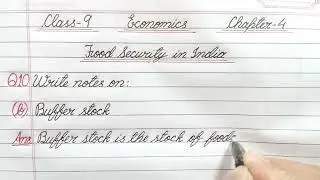 Class-9 Economics Chapter-4
Food Security in India
Q10. Write notes on:
(b) Buffer stock
Ans. Buffer stock is the stock of food